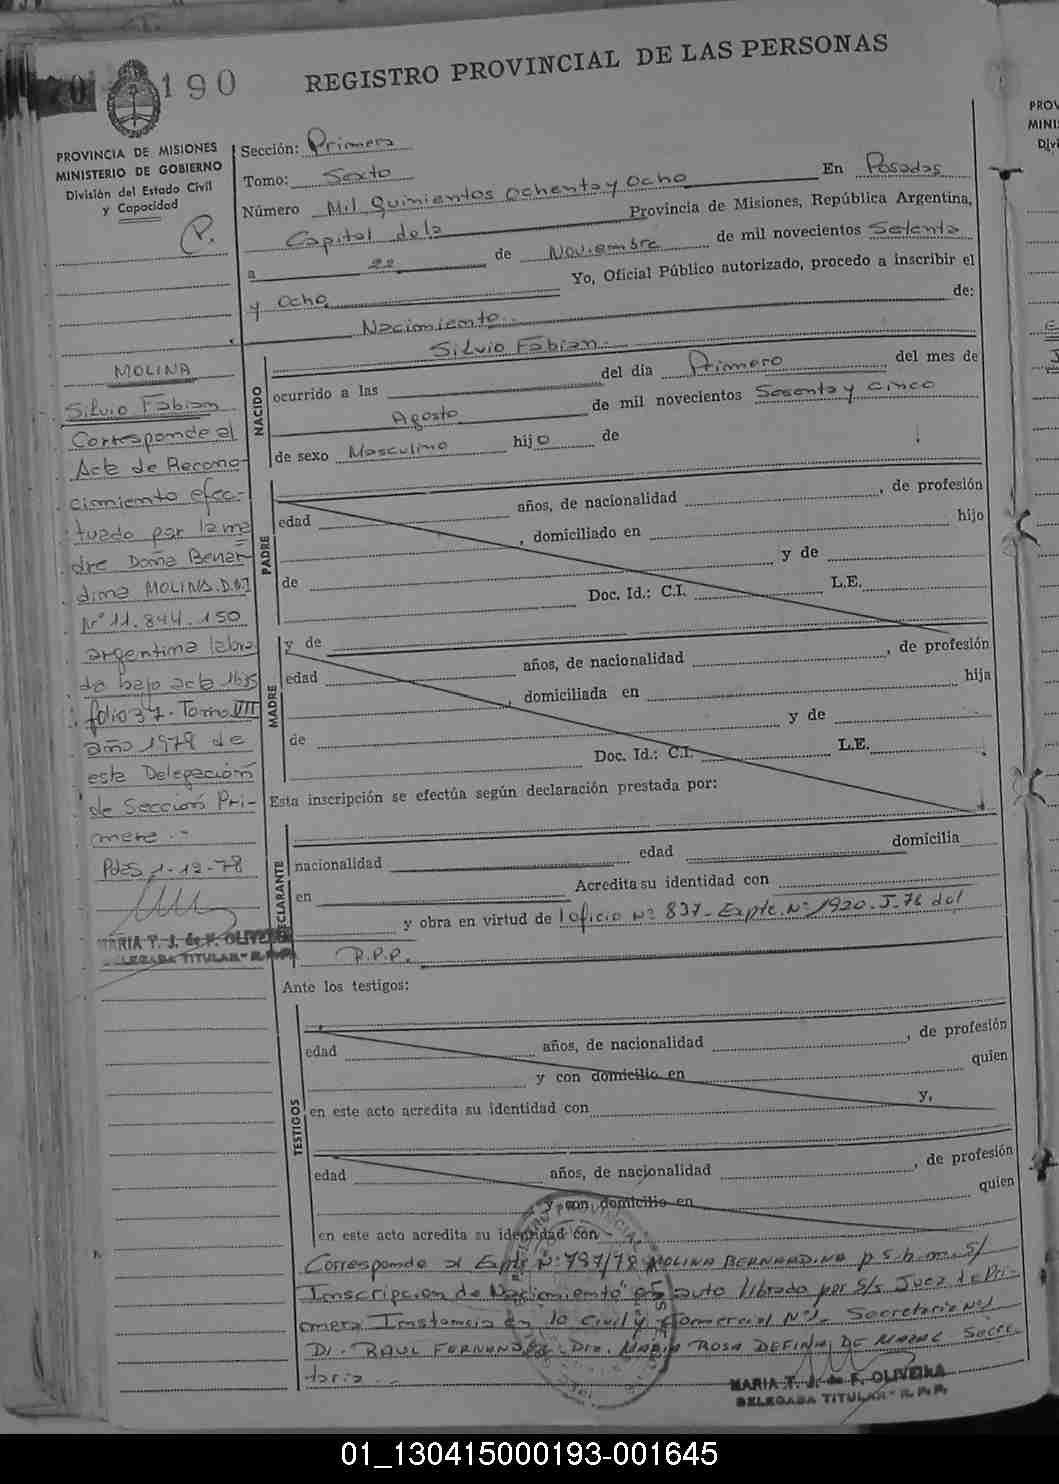 190
REGISTRO PROVINCIAL DE LAS PERSONAS
PROVINCIA DE MISIONES
MINISTERIO DE GOBIERNO
División del Estado Civil
y Capacidad
P.
Sección: Primera
Tomo: Sexto
Número Mil Quinientos Ochenta y Ocho En Posadas
Capital de la Provincia de Misiones, República Argentina,
a 22 de Noviembre de mil novecientos Setenta
y Ocho Yo, Oficial Público autorizado, procedo a inscribir el
Nacimiento de:
MOLINA
Silvio Fabian
Corresponde al
Acta de Recono-
cimiento efec-
tuado por la ma
dre Doña Bernar
dina MOLINA. D.N.I
Nº 11.844.150
argentina labra
da bajo acta 1635
folio 37. Tomo VIII
año 1978 de
esta Delegación
de Sección Pri-
mera.-
Pdas, 1-12-78
MARIA T. J. de F. OLIVEIRA
DELEGADA TITULAR - R.P.P.
NACIDO
Silvio Fabian.
ocurrido a las del día Primero del mes de
Agosto de mil novecientos Sesenta y cinco
de sexo Masculino hijo de
PADRE
edad años, de nacionalidad , de profesión
, domiciliado en hijo
de y de
Doc. Id.: C.I. L.E.
MADRE
y de
edad años, de nacionalidad , de profesión
, domiciliada en hija
de y de
Doc. Id.: C.I. L.E.
Esta inscripción se efectúa según declaración prestada por:
DECLARANTE
nacionalidad edad domicilia
en Acredita su identidad con
y obra en virtud de oficio Nº 837- Expte. Nº 1920-J-78 del
R.P.P.
Ante los testigos:
TESTIGOS
edad años, de nacionalidad , de profesión
y con domicilio en quien
en este acto acredita su identidad con y,
edad años, de nacionalidad , de profesión
y con domicilio en quien
en este acto acredita su identidad con
Corresponde al Expte Nº 797/78 MOLINA BERNARDINA p.s.h.m. S/
Inscripcion de Nacimiento" en auto librado por S/s Juez de Pri-
mera Instancia en lo Civil y Comercial Nº1- Secretaria Nº1
Dr. RAUL FERNANDEZ - Dra. MARIA ROSA DEFINA DE Secre
taria.-
MARIA T. J. de F. OLIVEIRA
DELEGADA TITULAR - R.P.P.
PROV
MINI
Divi
01_130415000193-001645